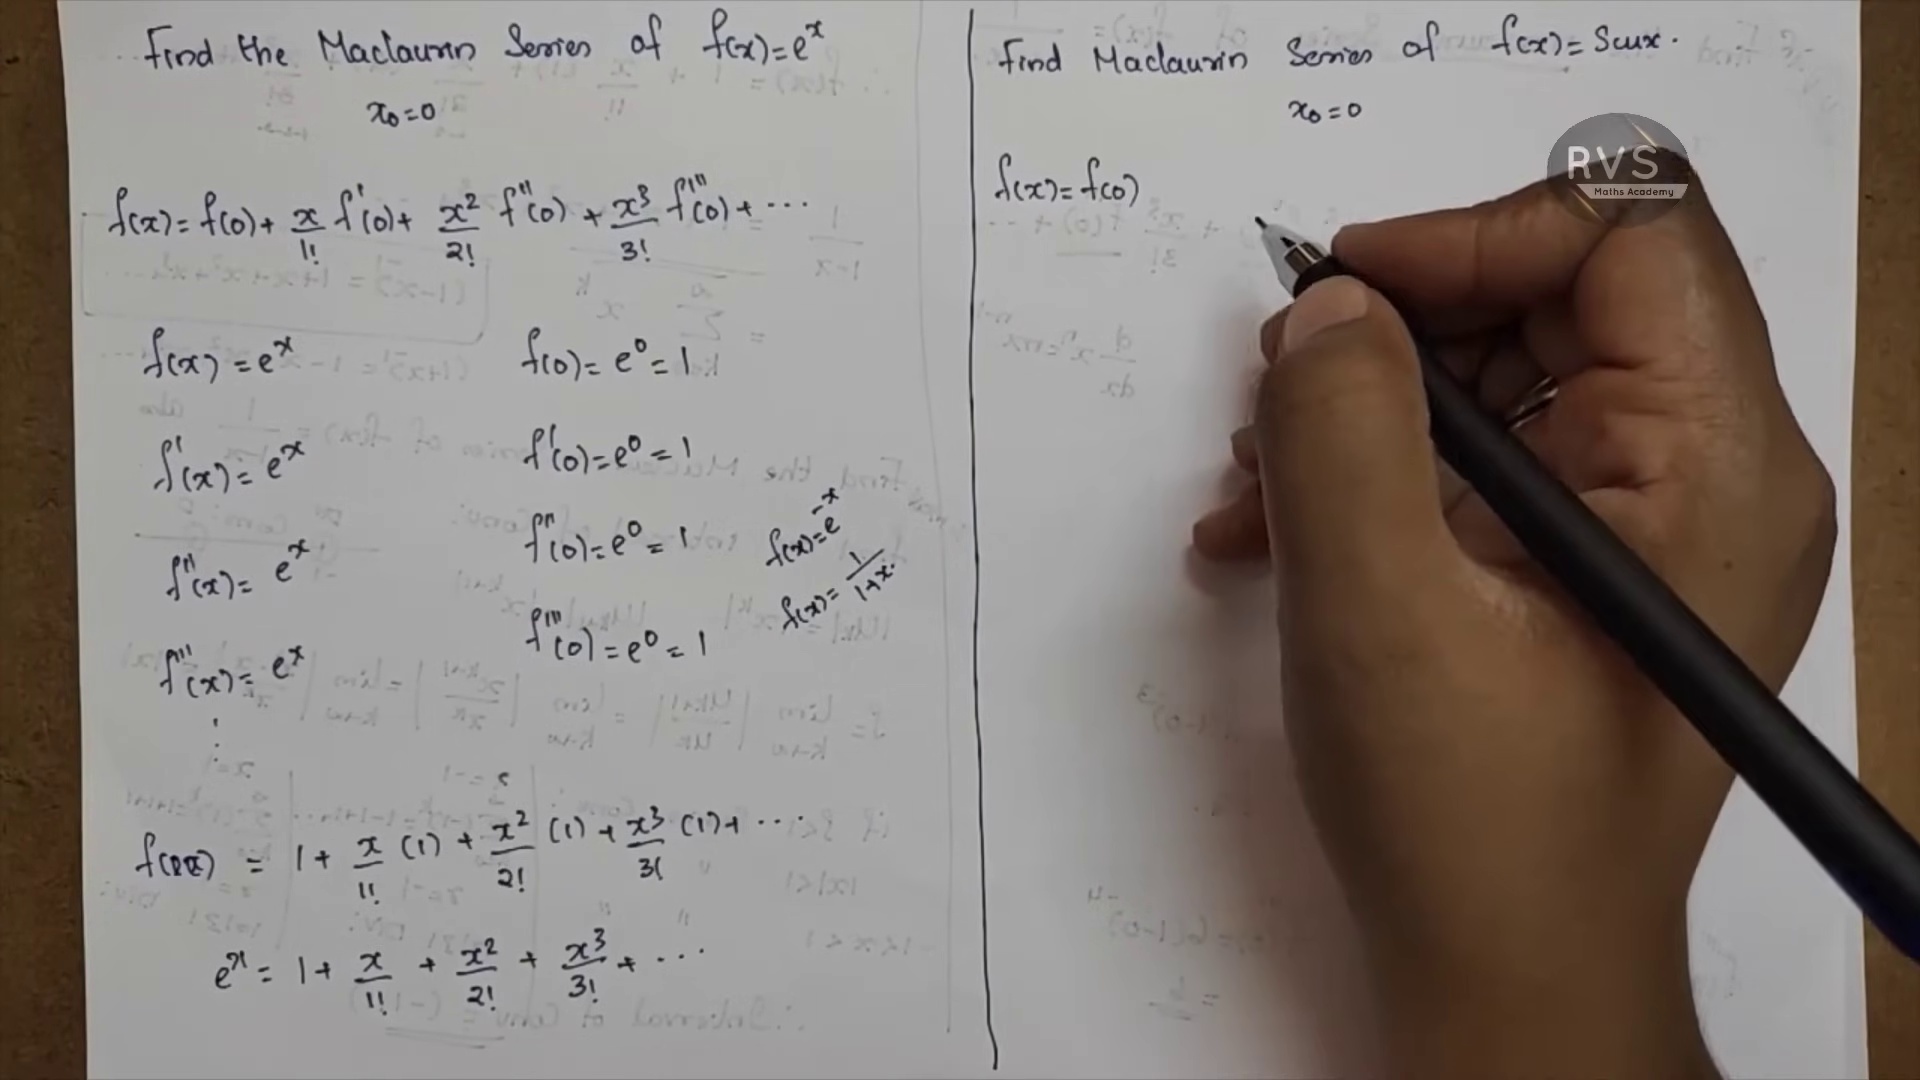 Find the Maclaurin Series of f(x)=e^x
x₀=0
f(x)=f(0)+ x/1! f'(0)+ x²/2! f''(0) + x³/3! f'''(0)+ ...
f(x)=e^x f(0)=e⁰=1
f'(x)=e^x f'(0)=e⁰=1
f''(x)= e^x f''(0)=e⁰=1
f'''(x)=e^x f'''(0)=e⁰=1
f(x)=e^-x
f(x)= 1/1+x.
= 1+ x/1! (1) + x²/2! (1) + x³/3! (1)+ ...
e^x = 1+ x/1! + x²/2! + x³/3! + ...
Find Maclaurin Series of f(x)=
x₀=0
f(x)=f(0)
RVS
Maths Academy